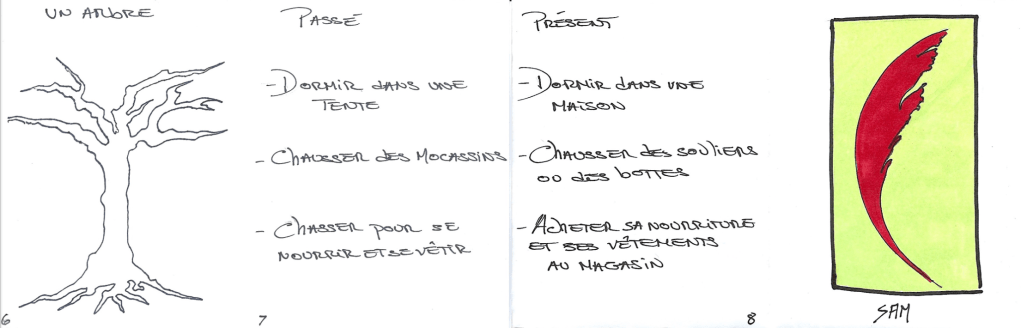 UN ARBRE
6
PASSÉ
- DORMIR DANS UNE
TENTE
- CHAUSSER DES MOCASSINS
- CHASSER POUR SE
NOURRIR ET SE VÊTIR
7
PRÉSENT
- DORMIR DANS UNE
MAISON
- CHAUSSER DES SOULIERS
OU DES BOTTES
- ACHETER SA NOURRITURE
ET SES VÊTEMENTS
AU MAGASIN
8
SAM